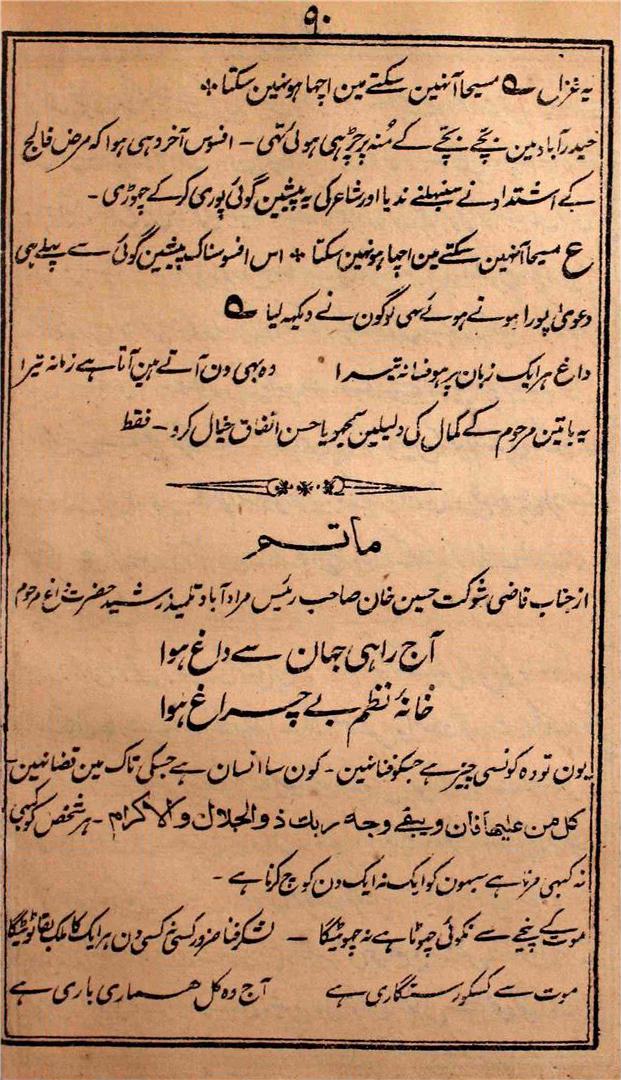 ۹۰
یہ غزل ؎ مسیحا آنہین سکتے مین اچھا ہو نہین سکتا *
حیدرآباد مین بچے بچے کے مُنہ پر چڑھی ہوئی تھی - افسوس آخر وہی ہوا کہ مرض فالج
کے اشتداد نے سنبھلنے ندیا اور شاعر کی یہ پیشین گوئی پوری کرکے چھوڑی -
ع مسیحا آنہین سکتے مین اچھا ہو نہین سکتا * اس افسوسناک پیشین گوئی سے پہلے ہی
دعویٰ پورا ہوتے ہوئے بھی لوگون نے دیکھ لیا ؎
داغ ہر ایک زبان پر ہو فسانہ تیرا وہ بھی دن آتے ہین آتا ہے زمانہ تیرا
یہ باتین مرحوم کے کمال کی دلیلین سمجھو یا حسن اتفاق خیال کرو - فقط
ماتم
از جناب قاضی شوکت حسین خان صاحب رئیس مرادآباد تلمیذ رشید حضرت داغ مرحوم
آج راہی جہان سے داغ ہوا
خانۂ نظم بے چراغ ہوا
یون تو وہ کونسی چیز ہے جسکو فنا نہین - کون سا انسان ہے جسکی تاک مین قضا نہین
کل من علیها فان ویبقے وجه ربك ذوالجلال والاکرام - ہر شخص کو کبھی
نہ کبھی مرنا ہے سبھون کو ایک نہ ایک دن کوچ کرنا ہے -
موت کے پنجے سے نکوئی چھوٹا ہے نہ چھوٹیگا - لشکر فنا ضرور کسی نہ کسی دن ہر ایک کا ملک بقا لوٹیگا
موت سے کسکو رستگاری ہے آج وہ کل ہماری باری ہے